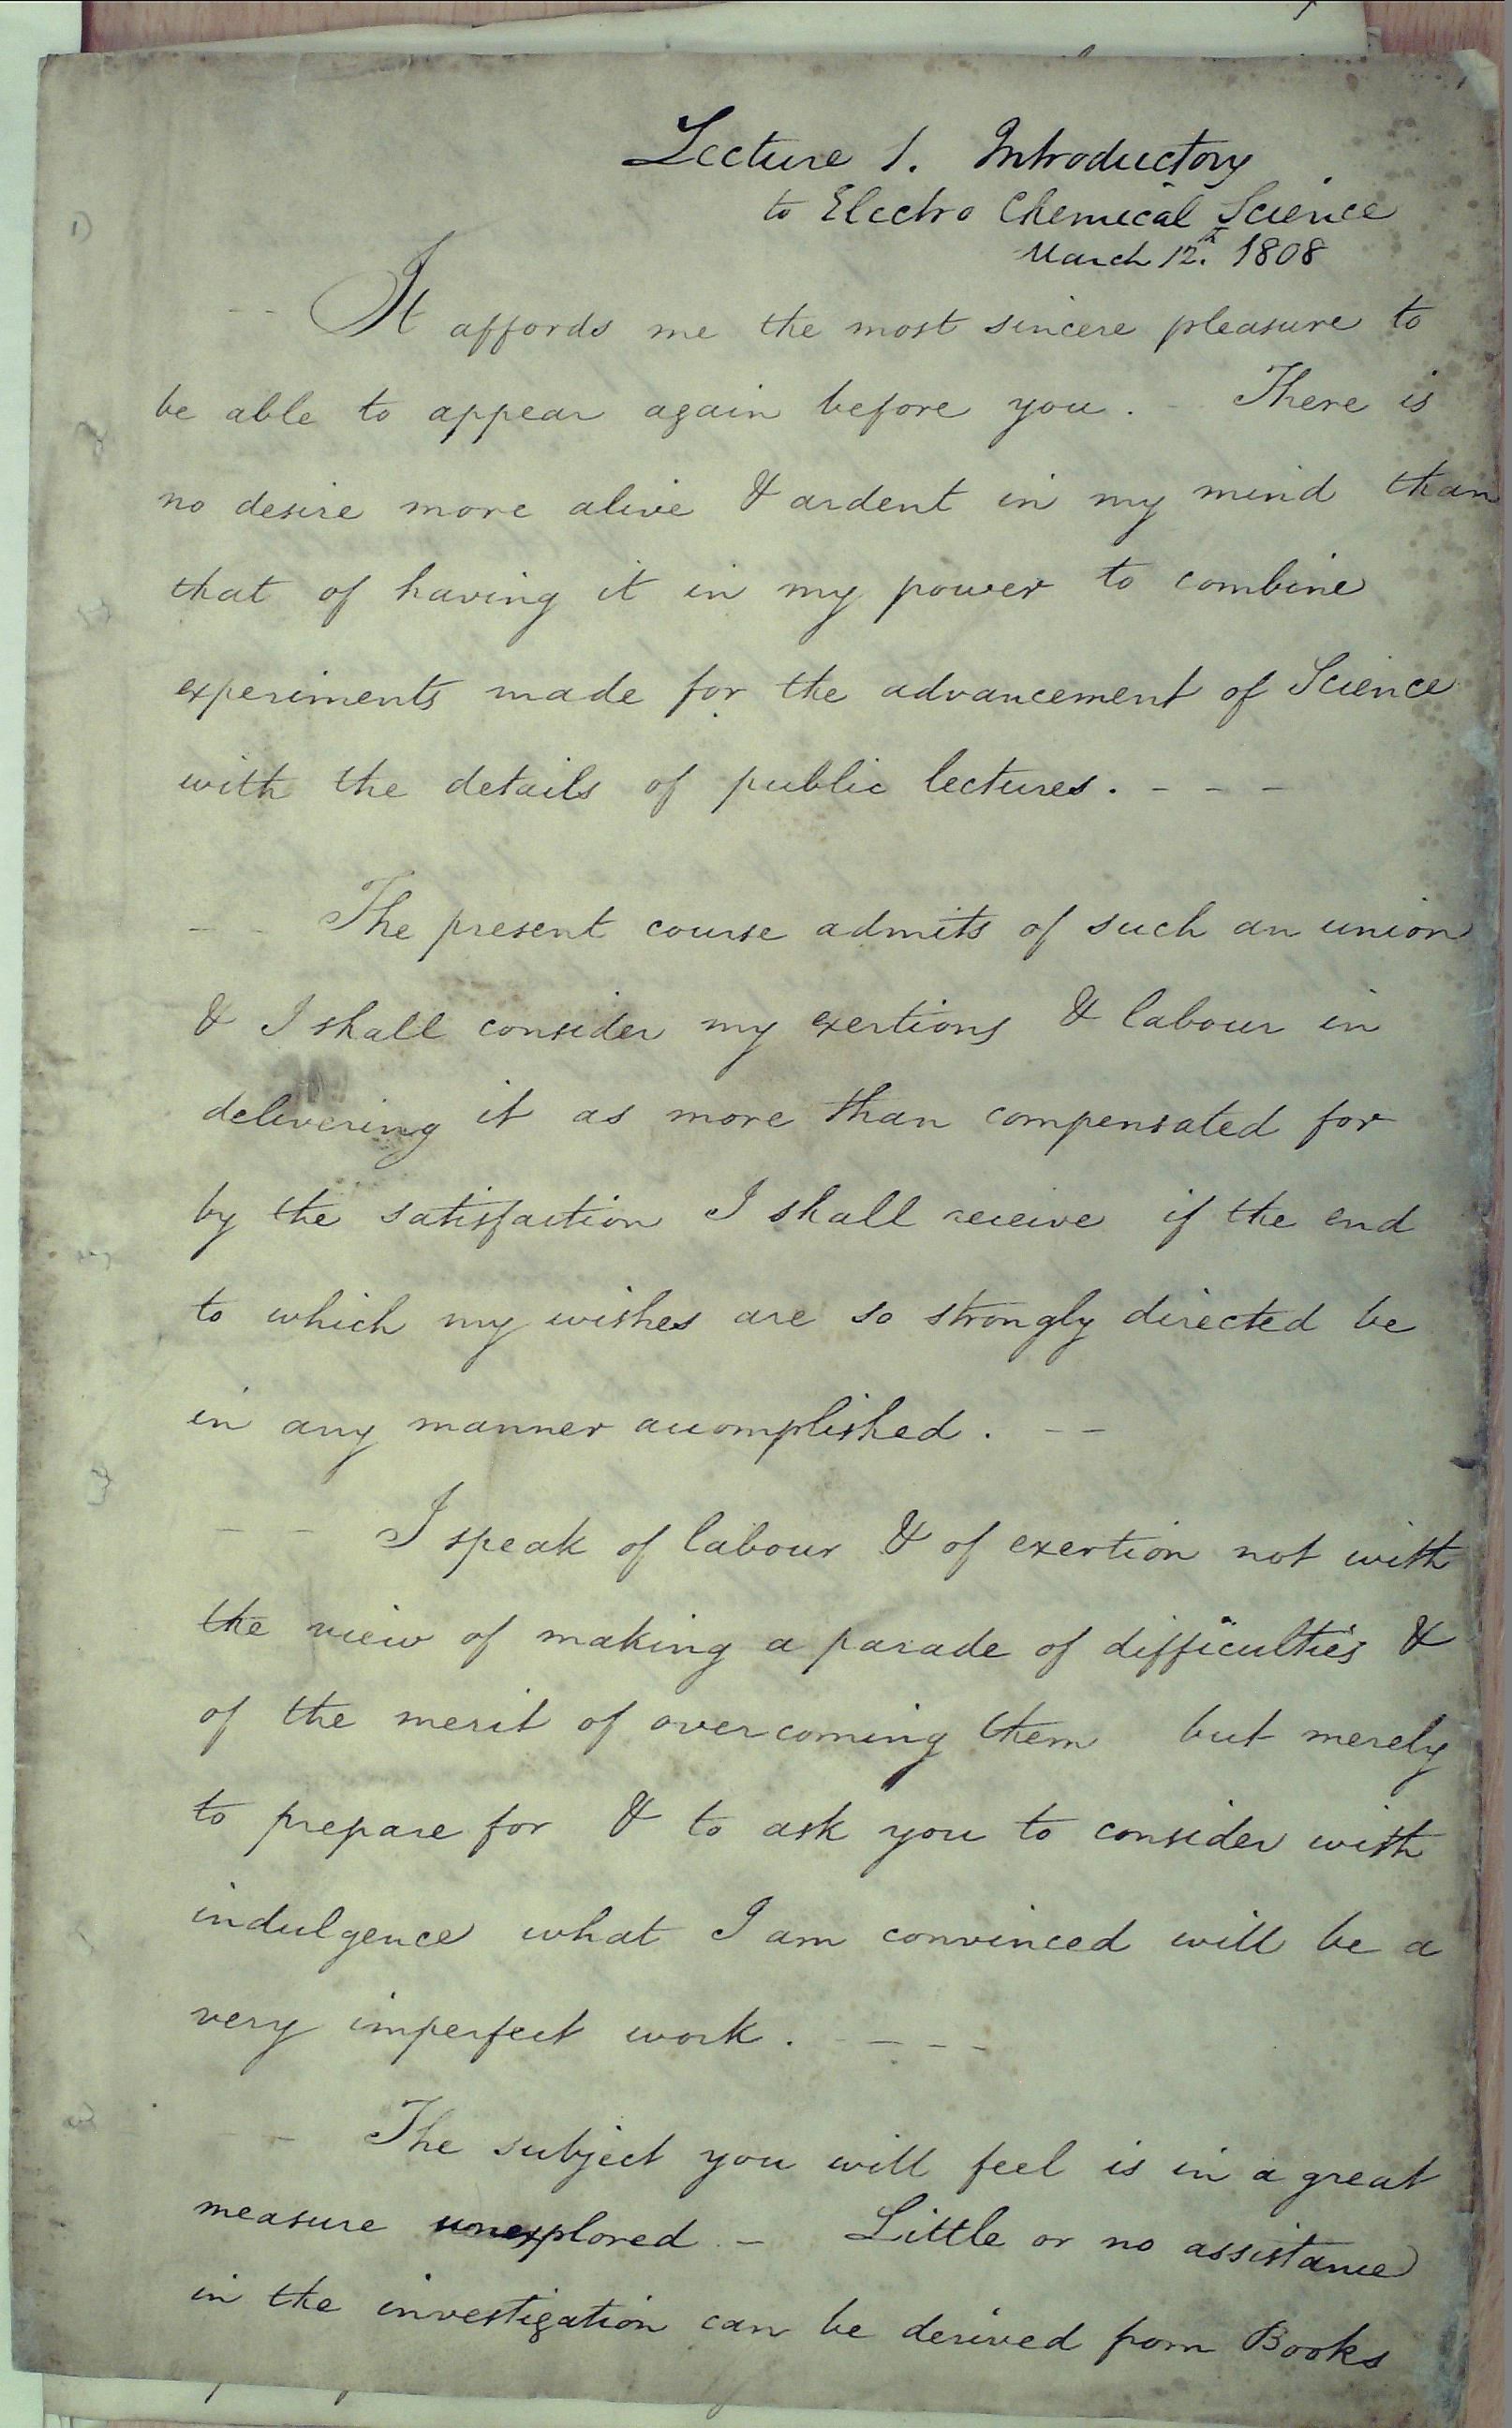 Lecture 1. Introductory
to Electro Chemical Science
March 12.th 1808
1)
-- It affords me the most sincere pleasure to
be able to appear again before you. - There is
no desire more alive & ardent in my mind than
that of having it in my power to combine
experiments made for the advancement of Science
with the details of public lectures. - - -
-- The present course admits of such an union
& I shall consider my exertions & labour in
delivering it as more than compensated for
by the satisfaction I shall receive if the end
to which my wishes are so strongly directed be
in any manner accomplished. --
-- I speak of labour & of exertion not with
the view of making a parade of difficulties &
of the merit of overcoming them but merely
to prepare for & to ask you to consider with
indulgence what I am convinced will be a
very imperfect work. - - - -
-- The subject you will feel is in a great
measure unexplored - Little or no assistance
in the investigation can be derived from Books